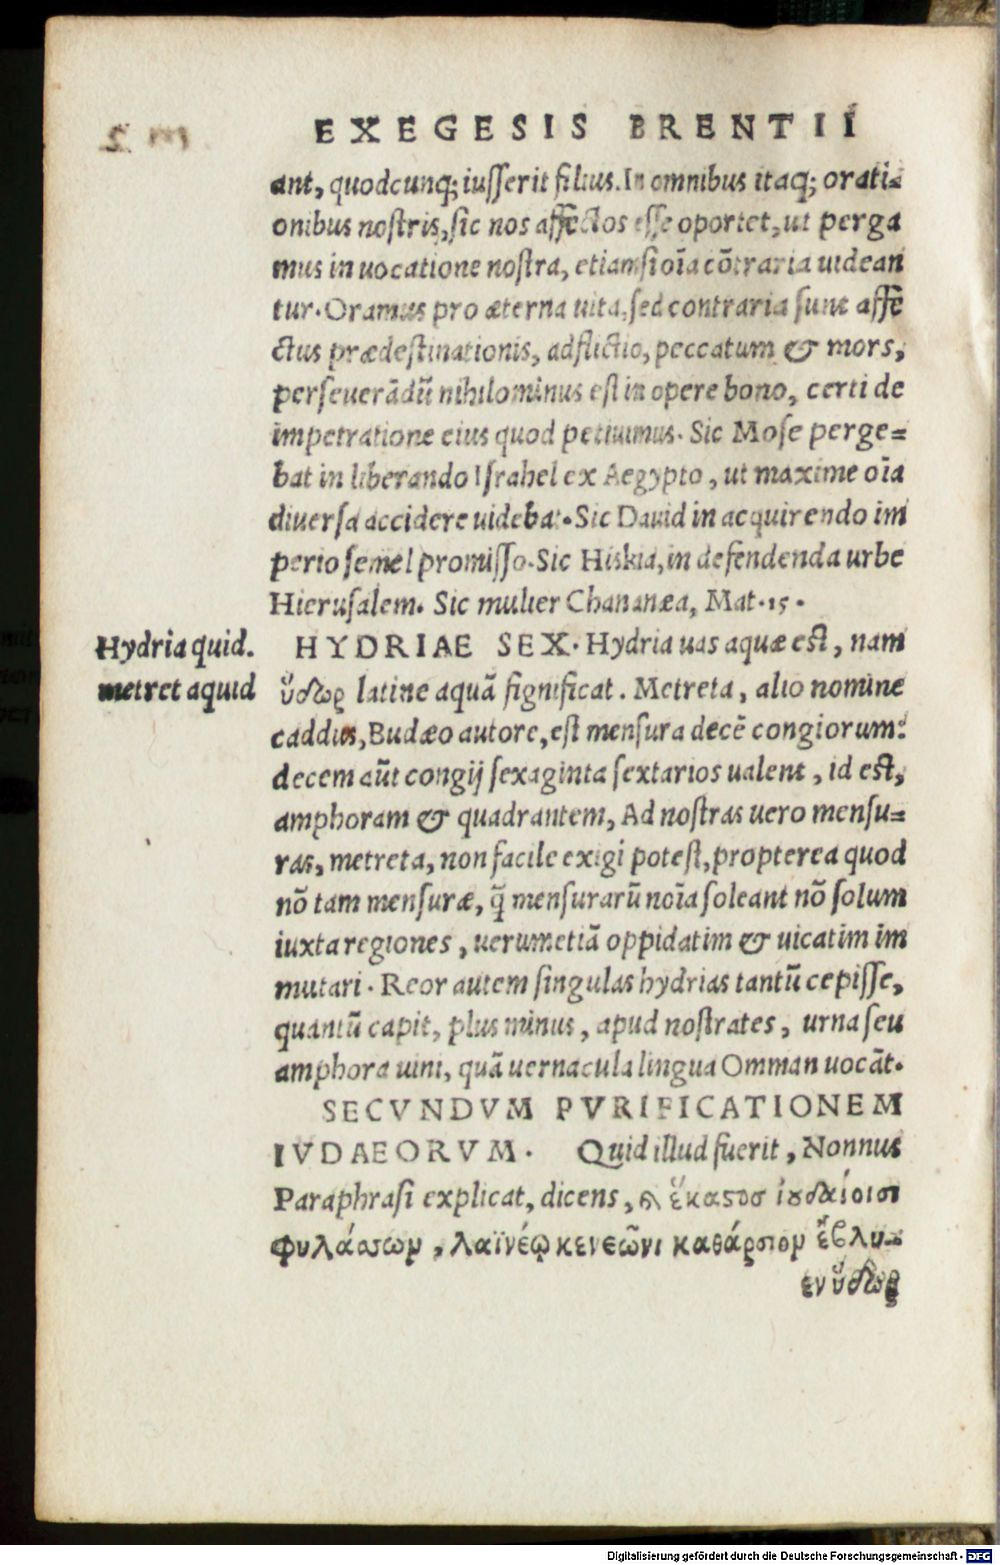 EXEGESIS BRENTII
ant, quodcunq; iusserit filius. In omnibus itaq; orati-
onibus nostris, sic nos affectos esse oportet, ut perga
mus in uocatione nostra, etiamsi oīa cōtraria uidean
tur. Oramus pro æterna uita, sed contraria sunt affe
ctus prædestinationis, adflictio, peccatum & mors,
perseuerādū nihilominus est in opere bono, certi de
impetratione eius quod petiuimus. Sic Mose perge-
bat in liberando Israhel ex Aegypto, ut maxime oīa
diuersa accidere uidebat. Sic Dauid in acquirendo im
perio semel promisso. Sic Hiskia, in defendenda urbe
Hierusalem. Sic mulier Chananæa, Mat. 15.
Hydria quid.
metreta quid
HYDRIAE SEX. Hydria uas aquæ est, nam
ὕδωρ latine aquā significat. Metreta, alio nomine
caddus, Budæo autore, est mensura decē congiorum:
decem aūt congij sexaginta sextarios ualent, id est,
amphoram & quadrantem, Ad nostras uero mensu-
ras, metreta, non facile exigi potest, propterea quod
nō tam mensuræ, q̄ mensurarū noīa soleant nō solum
iuxta regiones, uerumetiā oppidatim & uicatim im
mutari. Reor autem singulas hydrias tantū cepisse,
quantū capit, plus minus, apud nostrates, urna seu
amphora uini, quā uernacula lingua Omman uocāt.
SECVNDVM PVRIFICATIONEM
IVDAEORVM. Quid illud fuerit, Nonnus
Paraphrasi explicat, dicens, ἕκαστοσ ἰουδαίοισι
φυλάσσων, λαϊνέῳ κενεῶνι καθάρσιον ἔβλυ-
εν ὕδωρ
Digitalisierung gefördert durch die Deutsche Forschungsgemeinschaft - DFG